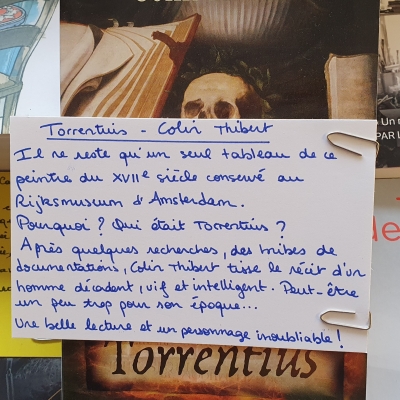 Torrentius - Colin Thibert
Il ne reste qu'un seul tableau de ce
peintre du XVIIe siècle conservé au
Rijksmuseum d'Amsterdam.
Pourquoi ? Qui était Torrentius ?
Après quelques recherches, des bribes de
documentations, Colin Thibert tisse le récit d'un
homme décadent, vif et intelligent. Peut-être
un peu trop pour son époque...
Une belle lecture et un personnage inoubliable !
Torrentius
Un
PAR L
de